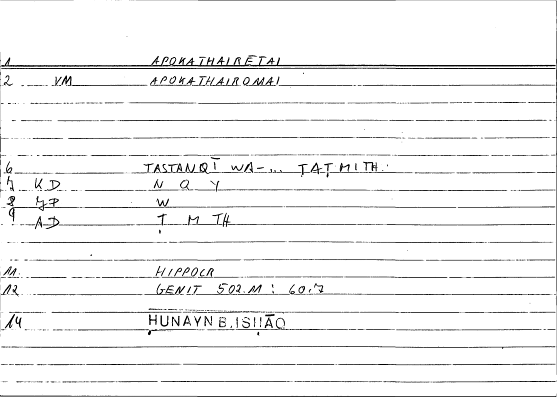 1 APOKATHAIRETAI
2 VM APOKATHAIROMAI
6 TASTANQĪ WA-... ṬAṬMITH.
7 KD N Q Y
8 YP W
9 AD Ṭ M TH
11 HIPPOCR
12 GENIT 502.M : 60.7
14 ḤUNAYN B.ISḤĀQ